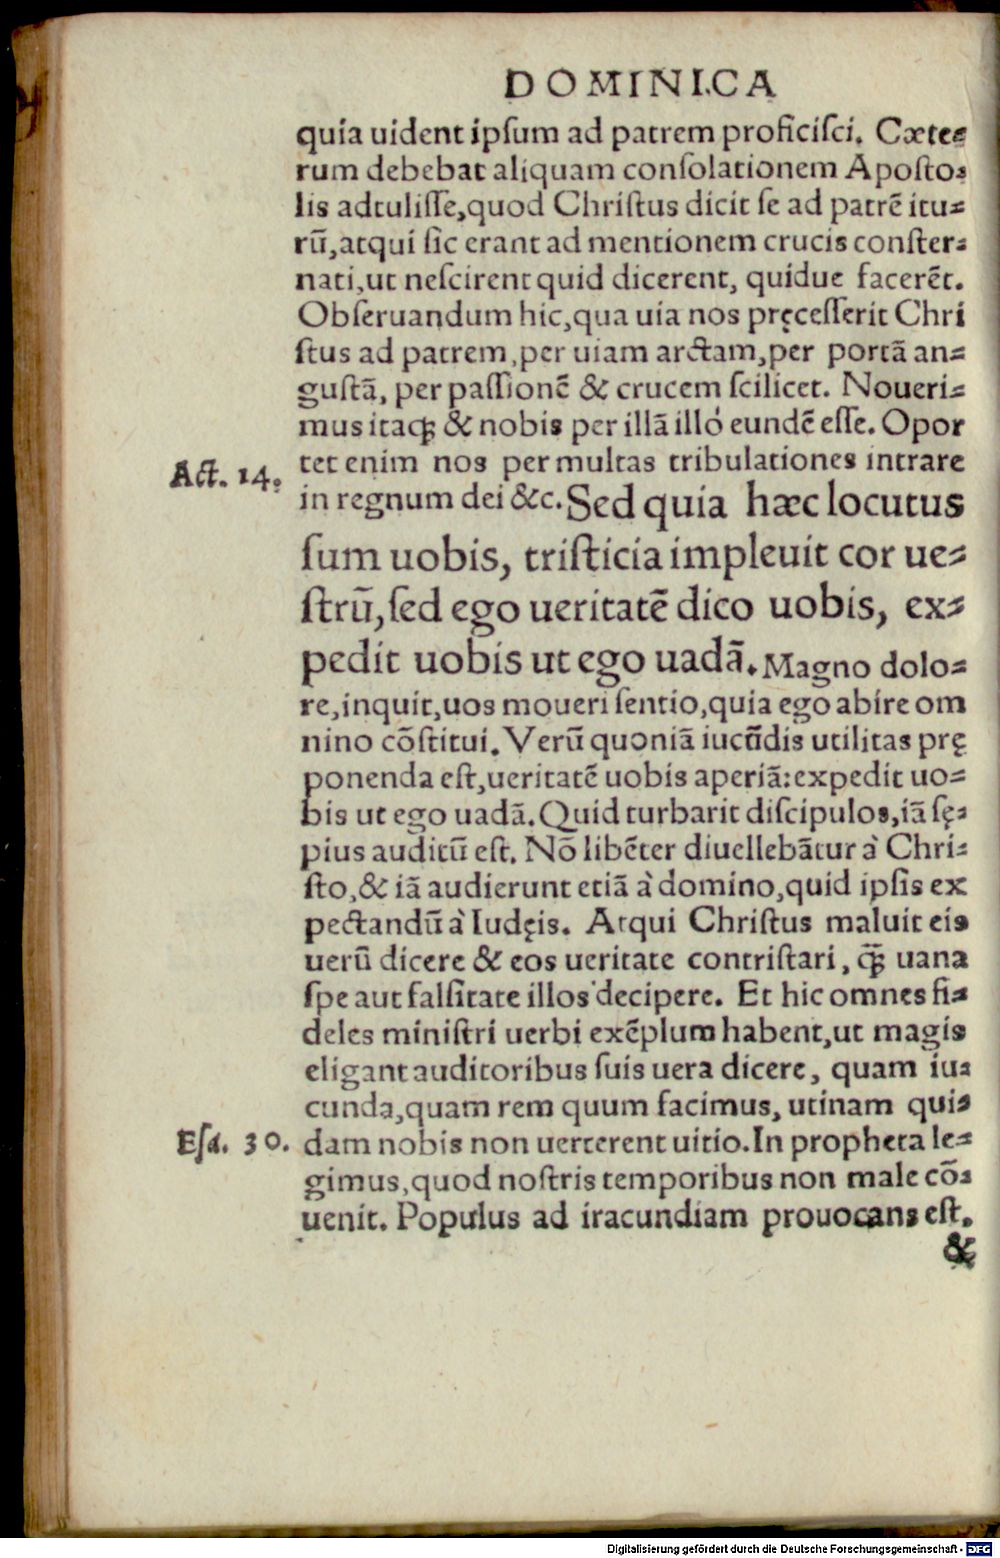 DOMINICA
quia uident ipſum ad patrem proficiſci. Cæte⸗
rum debebat aliquam conſolationem Apoſto⸗
lis adtuliſſe,quod Chriſtus dicit ſe ad patrē itu⸗
rū,atqui ſic erant ad mentionem crucis conſter⸗
nati,ut neſcirent quid dicerent, quidue facerēt.
Obſeruandum hic,qua uia nos pręceſſerit Chri
ſtus ad patrem,per uiam arctam,per portā an⸗
guſtā, per paſſionē & crucem ſcilicet. Noueri⸗
mus itaqꝫ & nobis per illā illó eundē eſſe. Opor
Act. 14. tet enim nos per multas tribulationes intrare
in regnum dei &c. Sed quia hæc locutus
ſum uobis, triſticia impleuit cor ue⸗
ſtrū,ſed ego ueritatē dico uobis, ex⸗
pedit uobis ut ego uadā. Magno dolo⸗
re,inquit,uos moueri ſentio,quia ego abire om
nino cōſtitui. Verū quoniā iucūdis utilitas prę
ponenda eſt,ueritatē uobis aperiā:expedit uo⸗
bis ut ego uadā. Quid turbarit diſcipulos,iā ſę⸗
pius auditū eſt. Nō libēter diuellebātur à Chri⸗
ſto,& iā audierunt etiā à domino,quid ipſis ex
pectandū à Iudęis. Atqui Chriſtus maluit eis
uerū dicere & eos ueritate contriſtari, q̄ꝫ uana
ſpe aut falſitate illos decipere. Et hic omnes fi⸗
deles miniſtri uerbi exēplum habent,ut magis
eligant auditoribus ſuis uera dicere, quam iu⸗
cunda,quam rem quum facimus, utinam qui⸗
Eſa. 30. dam nobis non uerterent uitio. In propheta le⸗
gimus,quod noſtris temporibus non male cō⸗
uenit. Populus ad iracundiam prouocans eſt.
&
Digitalisierung gefördert durch die Deutsche Forschungsgemeinschaft - DFG